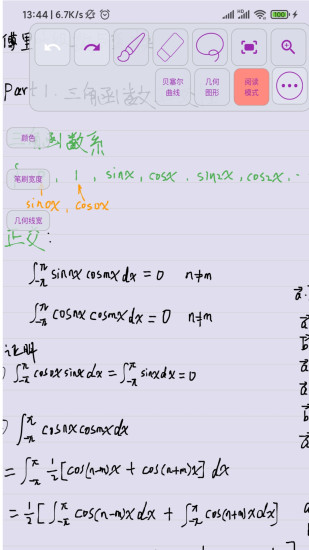 13:44 | 6.7K/s
100
傅里
Part 1. 三角函数
贝塞尔曲线
几何图形
阅读模式
颜色
函数系
笔刷宽度
, 1, sinx, cosx, sin2x, cos2x, ..
sin0x, cos0x
几何线宽
正交:
∫_{-π}^{π} sinnx cosmx dx = 0 n≠m
∫_{-π}^{π} cosnx cosmx dx = 0 n≠m
证明
) ∫_{-π}^{π} cos0x sinx dx = ∫_{-π}^{π} sinx dx = 0
) ∫_{-π}^{π} cosnx cosmx dx
= ∫_{-π}^{π} 1/2 [cos(n-m)x + cos(n+m)x] dx
= 1/2 [∫_{-π}^{π} cos(n-m)x dx + ∫_{-π}^{π} cos(n+m)x dx]